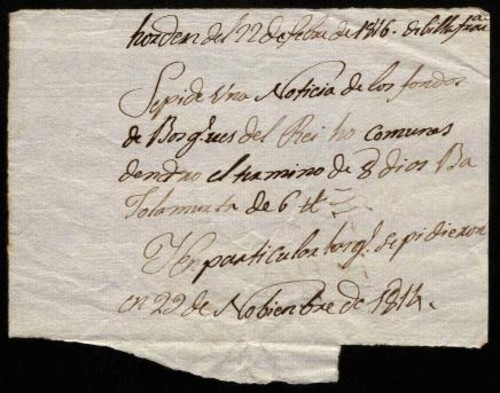 horden del 22 de febre de 1816. de billafranca
Sepide Una Noticia de los fondos
de Bosques del Rei ho comunes
dentro el termino de 8 dias Ba
la multa de 6 tt
particular sepidieron
en 29 de Nobienbre de 1814.